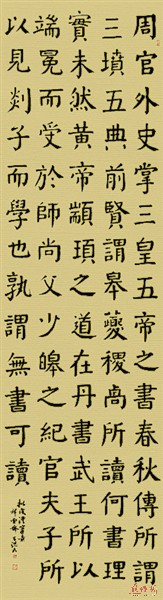 周官外史掌三皇五帝之書春秋傳所謂
三墳五典前賢謂皋夔稷卨所讀何書理
實未然黃帝顓頊之道在丹書武王所以
端冕而受於師尚父少皞之紀官夫子所
以見郯子而學也孰謂無書可讀